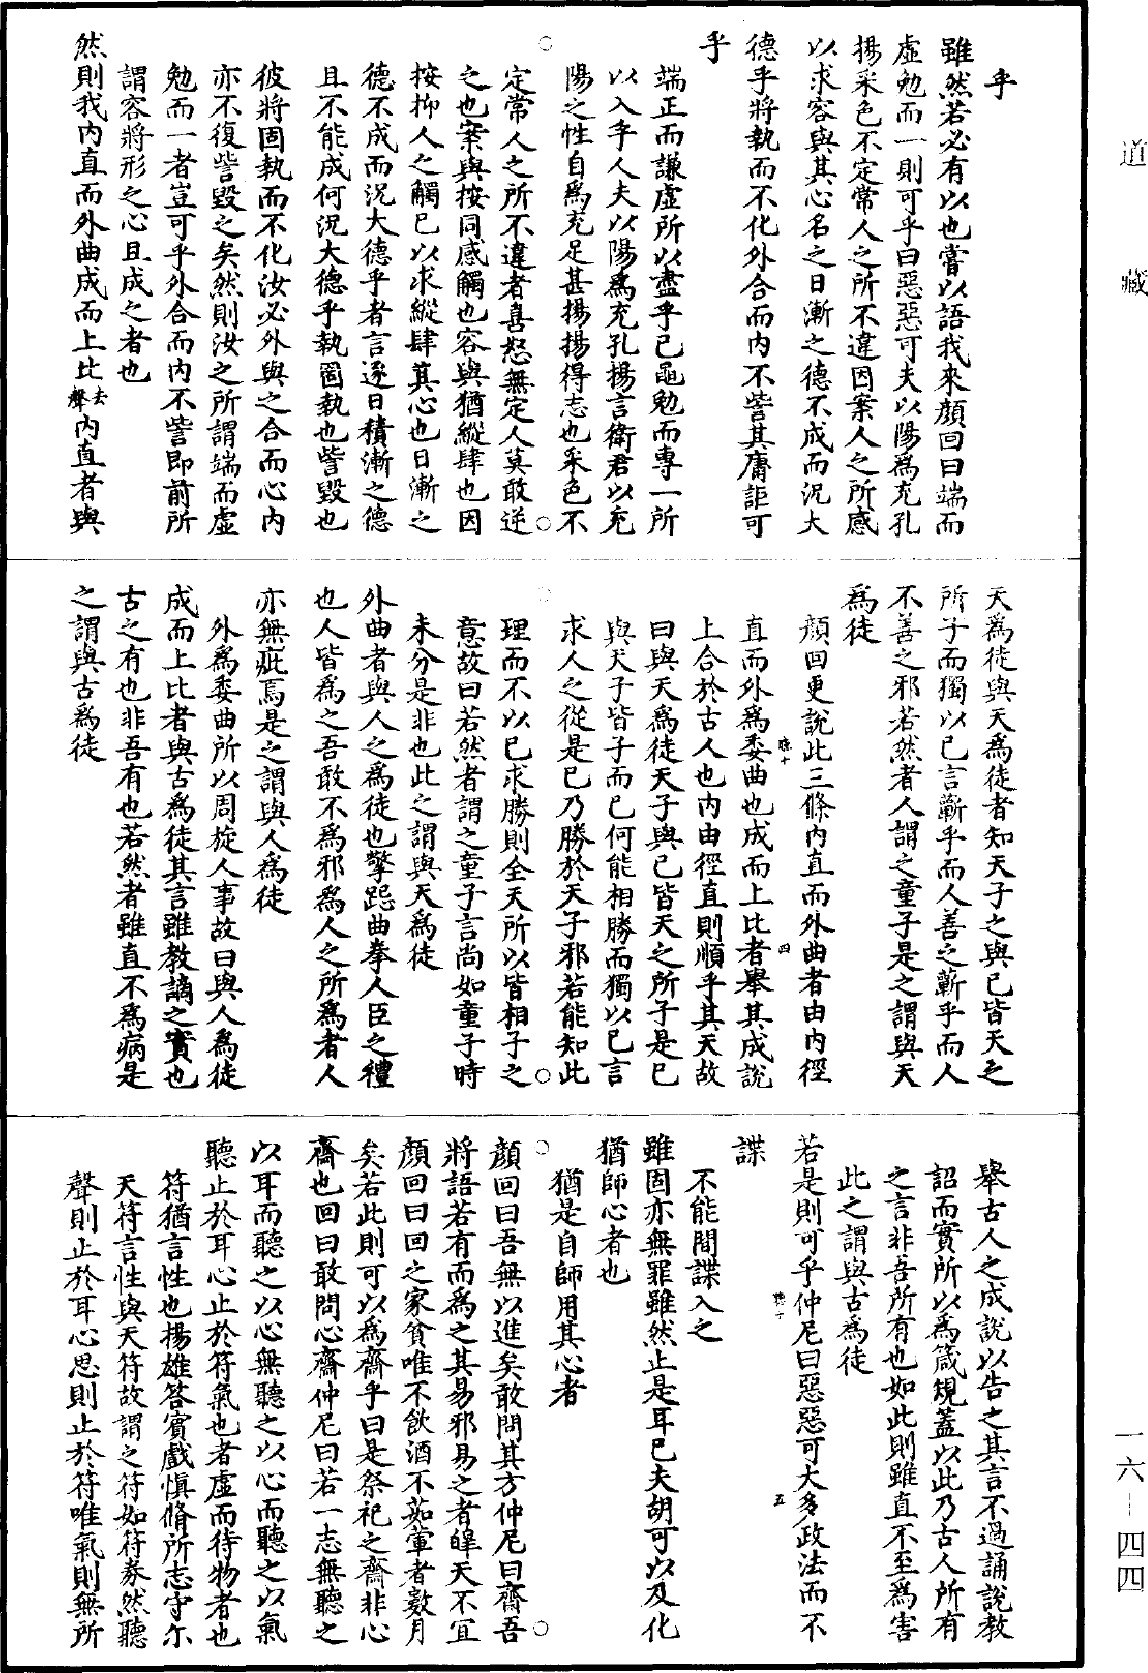 道藏
乎
雖然若必有以也嘗以語我來顏回曰端而
虛勉而一則可乎曰惡惡可夫以陽為充孔
揚采色不定常人之所不違因案人之所感
以求容與其心名之日漸之德不成而況大
德乎將執而不化外合而內不訾其庸詎可
乎
端正而謙虛所以盡乎己黽勉而專一所
以入乎人夫以陽為充孔揚言衛君以充
陽之性自為充足甚揚揚得志也采色不
定常人之所不違者喜怒無定人莫敢逆
之也案與按同感觸也容與猶縱肆也因
按抑人之觸己以求縱肆其心也日漸之
德不成而況大德乎者言逐日積漸之德
且不能成何況大德乎執固執也訾毀也
彼將固執而不化汝必外與之合而心內
亦不復訾毀之矣然則汝之所謂端而虛
勉而一者豈可乎外合而內不訾即前所
謂容將形之心且成之者也
然則我內直而外曲成而上比去聲內直者與
天為徒與天為徒者知天子之與己皆天之
所子而獨以己言蘄乎而人善之蘄乎而人
不善之邪若然者人謂之童子是之謂與天
為徒
顏回更說此三條內直而外曲者由內徑
直而外為委曲也成而上比者舉其成說
上合於古人也內由徑直則順乎其天故
曰與天為徒天子與己皆天之所子是己
與天子皆子而已何能相勝而獨以己言
求人之從是己乃勝於天子邪若能知此
理而不以己求勝則全天所以皆相子之
意故曰若然者謂之童子言尚如童子時
未分是非也此之謂與天為徒
外曲者與人之為徒也擎跽曲拳人臣之禮
也人皆為之吾敢不為邪為人之所為者人
亦無疵焉是之謂與人為徒
外為委曲所以周旋人事故曰與人為徒
成而上比者與古為徒其言雖教讁之實也
古之有也非吾有也若然者雖直不為病是
之謂與古為徒
舉古人之成說以告之其言不過誦說教
詔而實所以為箴規蓋以此乃古人所有
之言非吾所有也如此則雖直不至為害
此之謂與古為徒
若是則可乎仲尼曰惡惡可大多政法而不
諜
不能間諜入之
雖固亦無罪雖然止是耳已夫胡可以及化
猶師心者也
猶是自師用其心者
顏回曰吾無以進矣敢問其方仲尼曰齋吾
將語若有而為之其易邪易之者皞天不宜
顏回曰回之家貧唯不飲酒不茹葷者數月
矣若此則可以為齋乎曰是祭祀之齋非心
齋也回曰敢問心齋仲尼曰若一志無聽之
以耳而聽之以心無聽之以心而聽之以氣
聽止於耳心止於符氣也者虛而待物者也
符猶言性也揚雄答賓戲慎脩所志守尔
天符言性與天符故謂之符如符券然聽
聲則止於耳心思則止於符唯氣則無所
一六—四四